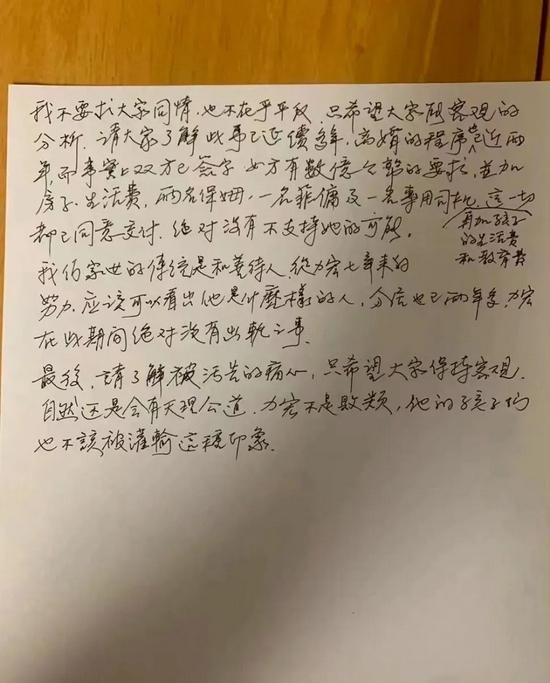 我不要求大家同情,也不在乎平反,只希望大家能客观的
分析,请大家了解此事已延续多年,离婚的程序已近两
年,而事实上双方已签字,女方有数億台幣的要求,並加
房子,生活费,两名保姆,一名菲傭及一名專用司机,這一切
再加孩子
的生活费
和教育费
都已同意交付,绝对没有不支持她的可能。
我们家世的傳统是和善待人,從力宏七年来的
努力,应该可以看出他是什麼樣的人,分居也已两年多,力宏
在此期间绝对没有出軌之事.
最後,請了解被污苦的痛心,只希望大家保持客观.
自然还是会有天理公道,力宏不是败類,他的孩子们
也不該被灌輸這種印象.